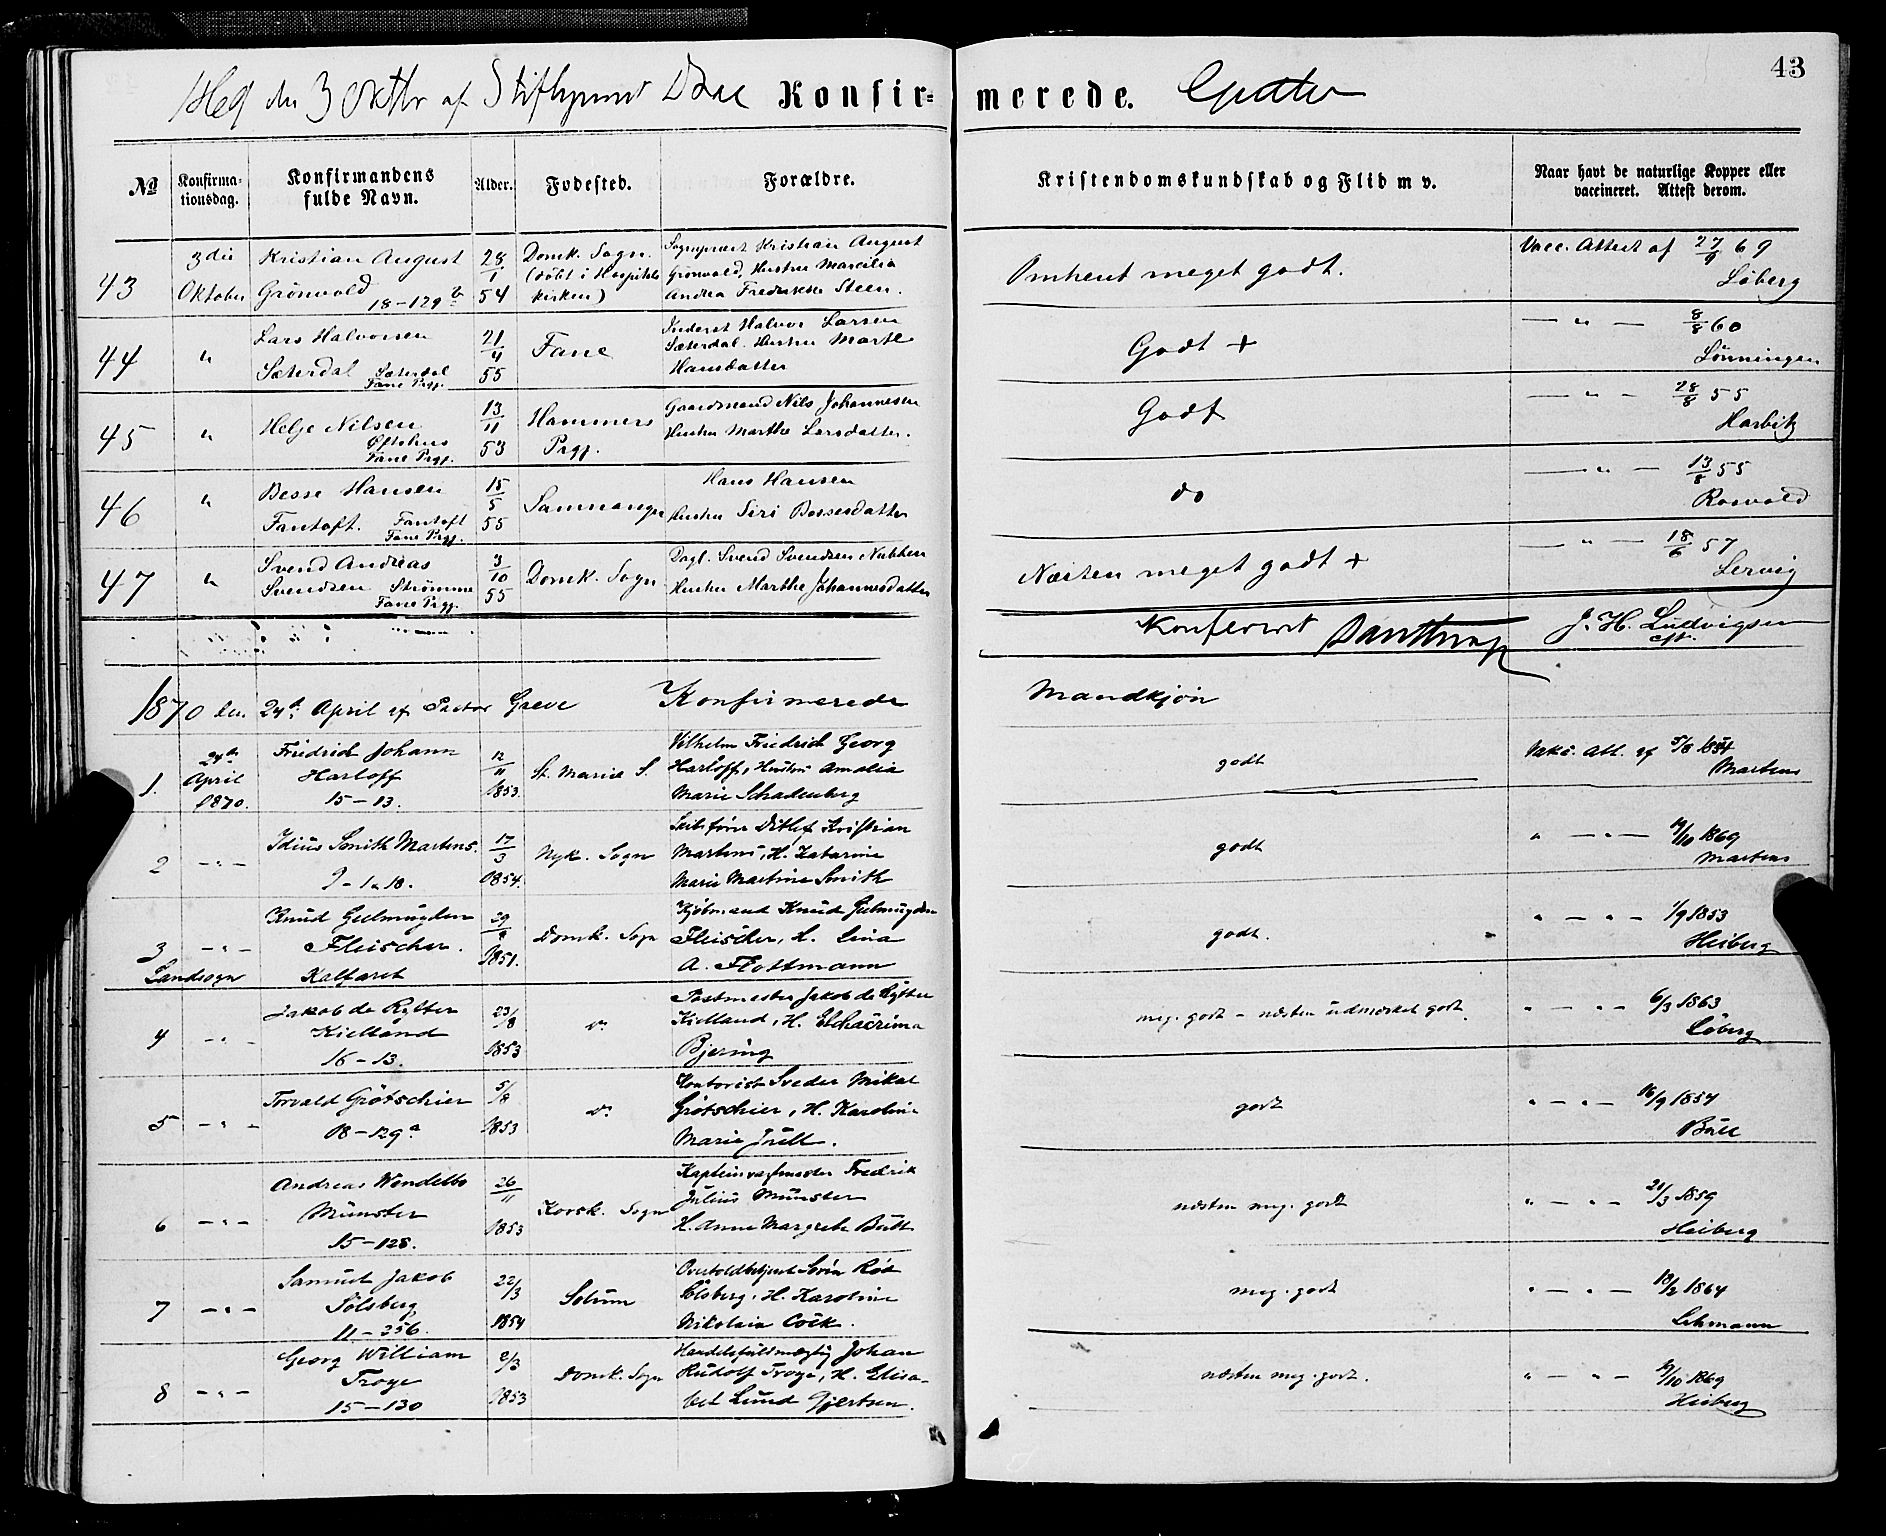 43
den 3 Oktbr af Stiftsprovst Konfir- merede. Gutter
№ Konfirma- tionsdag. Konfirmandens fulde Navn. Alder. Fødested. Forældre. Kristendomskundskab og Flid m v. Naar havt de naturlige Kopper eller vaccineret. Attest derom.
43 3die Oktober Kristian August Grönvold 18-129 b 28/1 54 Domk. Sogn. (döbt i Hospitals kirken) Sogneprest Kristian August Grönvold, Hustru Marcilia Andrea Fredrikke Steen. Omtrent meget godt. Vacc. Attest af 27/9 69 Löberg
44 " Lars Halvorsen Sæterdal Sæterdal Fane Prgj. 21/4 55 Fane Inderst Halvor Larsen Sæterdal. Hustru Marte Hansdatter Godt + — " — 8/8 60 Lönningen
45 " Helje Nilsen Fane Prgj. 13/11 53 Hammers Prgj. Gaardmand Nils Johannesen Hustru Marthe Larsdatter. Godt — " — 28/8 55 Harbitz
46 " Besse Hansen Fantoft. Fantoft Fane Prgj. 15/5 55 Samnanger Hans Hansen Hustru Siri Bessesdatter do — " — 13/8 55 Rosvold
47 " Svend Andreas Svendsen Strömme Fane Prgj. 3/10 55 Domk. Sogn Dagl. Svend Svendsen Nubben Hustru Marthe Johannesdatter Næsten meget godt + — " — 18/6 57 Lervig
Konfereret Dantrup J. H. Ludvigsen
1870 den 24de April af Pastor Greve Konfirmerede Mandkjön
1. 24de April 1870. Fridrich Johann Harloff 15-13. 12/11 1853. St. Marie S. Vilhelm Friedrich Georg Harloff, Hustru Amalia Marie Schadenberg godt Vakc. Att. af 5/8 1854 Martens
2 — " — Idius Smith Martens. 9-1 a 18. 17/3 1854. Nyk. Sogn Ditlef Kristian Martens, H. Katarine Marie Martine Smith godt " — " — 19/10 1869 Martens
3 — " — Landsogn Knud Geelmuyden Fleischer. Kalfaret 29/8 1851. Domk. Sogn Kjöbmand Knud Geelmuyden Fleischer, H. Lina A. Flottmann godt. " — " — 1/9 1853 Heiberg
4 — " — Jakob de Rytter Kielland 16-13. 23/8 1853 do Postmester Jakob de Rytter Kielland, H. Elchacrima Bjering meg. godt - næsten udmærket godt. " — " — 6/3 1863 Löberg
5 — " — Torvald Grötschier 18-129 a 5/8 1853 do Kontorist Sveder Mikal Grötschier, H. Karoline Marie Juell. godt " — " — 16/9 1854 Büll
6 — " — Andreas Wendelbo Münster 15-128. 26/11 1853 Korsk. Sogn Fredrik Julius Münster H. Anne Margrete Bütt næsten meg. godt " — " — 21/3 1859 Heiberg
7 — " — Samuel Jakob Sölsberg, 11-256. 22/3 1854 Solum Overtoldbetjent Sörin Röd Sölsberg, H. Karoline Nikolaia Cöck. meg. godt " — " — 18/2 1864 Lehmann
8 — " — Georg William Troye 15-130 2/3 1853 Domk. Sogn Handelsfuldmægtig Johan Rudolf Troye, H. Elisa- bet Lund Gjertsen. næsten meg. godt. " — " — 9/10 1869 Heiberg